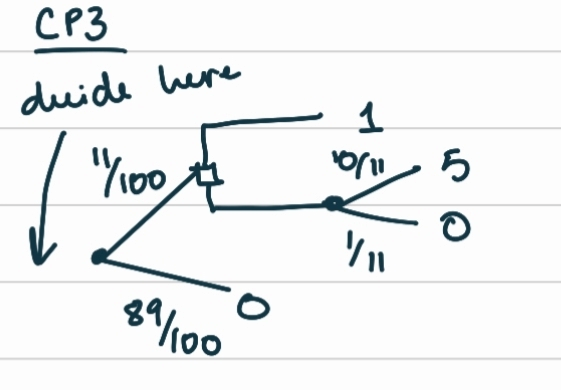 CP3
decide here
1
11/100
10/11
5
0
1/11
89/100
0